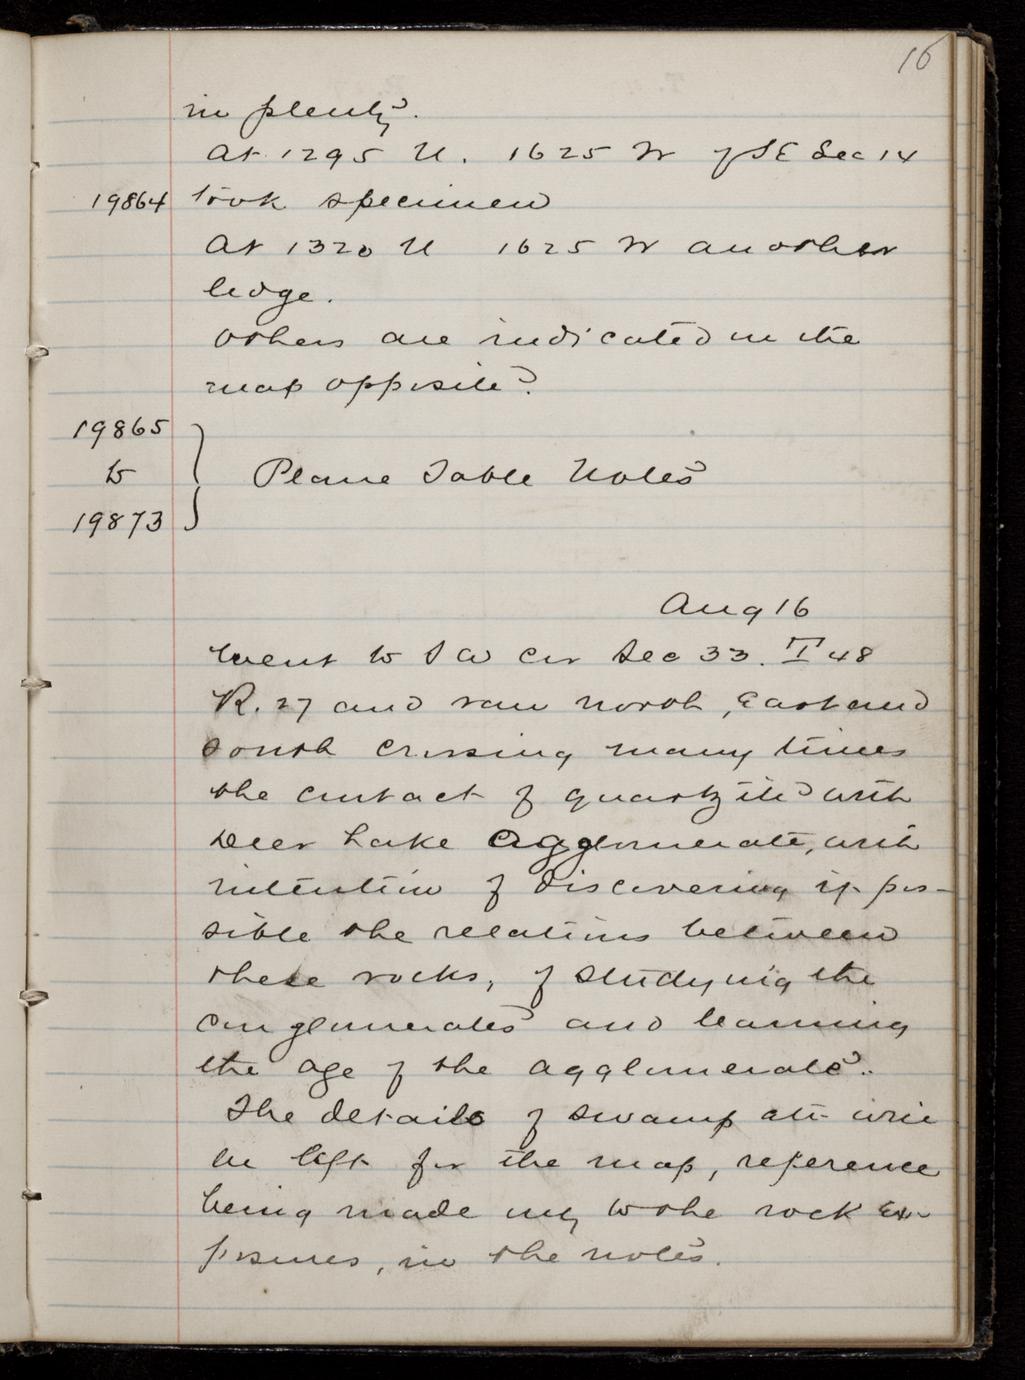 16
in plenty.
At 1295 N. 1625 W of SE Sec 14
19864 took specimen
At 1320 N 1625 W another
ledge.
Others are indicated in the
map opposite.
19865
to
19873
Plane Table Notes
Aug 16
Went to SW Cor Sec 33. T 48
R. 27 and ran north, East and
South crossing many times
the contact of quartzite with
Deer Lake agglomerate, with
intention of discovering if pos-
sible the relations between
these rocks, of studying the
conglomerates and learning
the age of the agglomerate.
The details of swamp etc will
be left for the map, reference
being made only to the rock ex-
posures, in the notes.